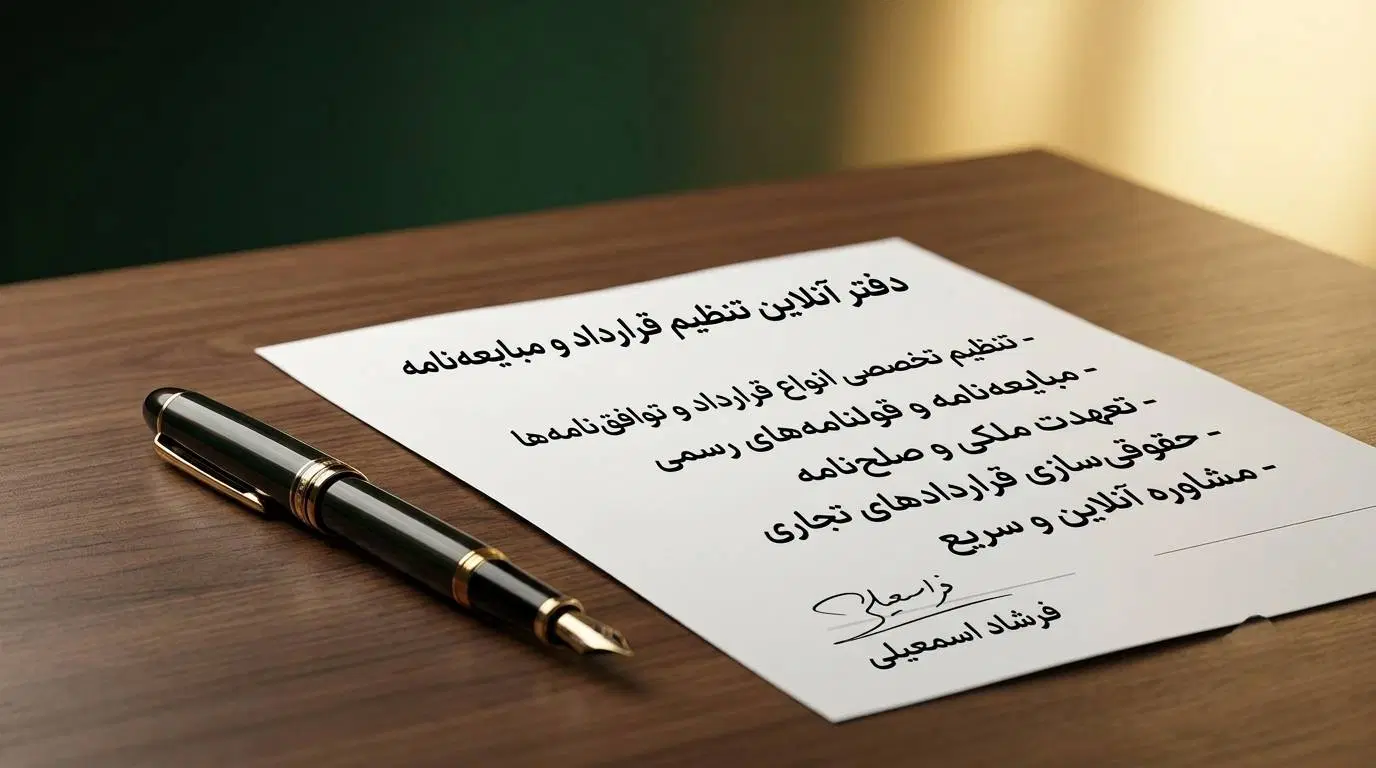 دفتر آنلاین تنظیم قرارداد و مبایعه‌نامه
- تنظیم تخصصی انواع قرارداد و توافق‌نامه‌ها
- مبایعه‌نامه و قولنامه‌های رسمی
- تعهدت ملکی و صلح‌نامه
- حقوقی‌سازی قراردادهای تجاری
- مشاوره آنلاین و سریع
فراسعیلی
فرشاد اسمعیلی